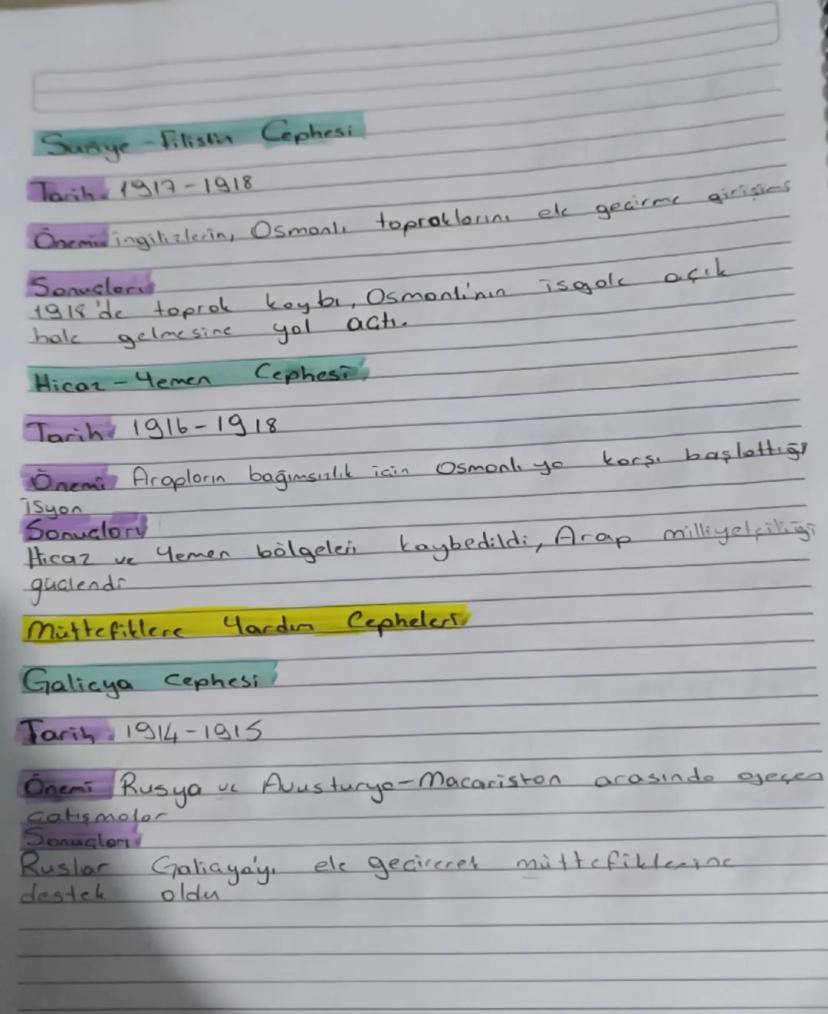 Suriye - Filistin Cephesi
Tarih: 1917-1918
Önemi: ingilizlerin, Osmanlı topraklarını ele geçirme girişimi
Sonuçları
1918'de toprak kaybı, Osmanlı'nın isgale açık
hale gelmesine yol açtı.
Hicaz-Yemen Cephesi
Tarih: 1916-1918
Önemi Arapların bağımsızlık için Osmanlı ya karşı başlattığı
isyan
Sonuçları
Hicaz ve Yemen bölgeleri kaybedildi, Arap milliyetçiliği
güçlendi
Müttefiklere Yardım Cepheleri
Galiçya Cephesi
Tarih: 1914-1915
Önemi Rusya ve Avusturya-Macaristan arasında geçen
çatışmalar
Sonuçları
Ruslar Galiçya'yı ele geçirerek müttefiklerine
destek oldu